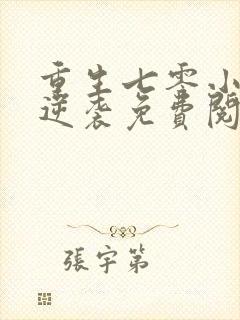 重生七零小
逆袭免費閱
張宇第